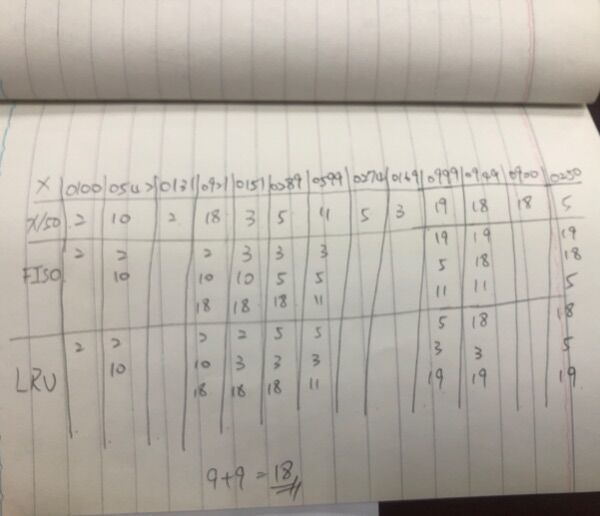 X 0100 0547 0131 0921 0151 0289 0599 0274 0169 0999 0949 0900 0250
X/50 2 10 2 18 3 5 11 5 3 19 18 18 5
2 2 2 3 3 3 19 19 19
FISO 10 10 10 5 5 5 18 18
18 18 18 11 11 11 5
2 2 2 2 5 5 5 18 18
LRU 10 10 3 3 3 3 3 5
18 18 18 11 19 19 19
9+9 = 18